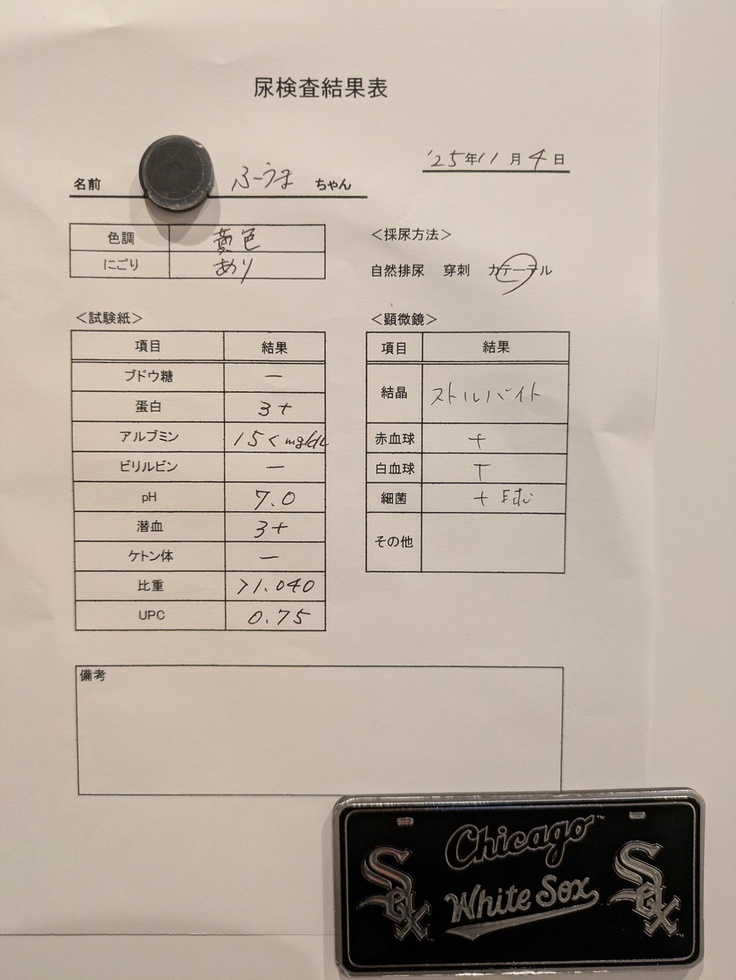 尿検査結果表
'25年11月4日
名前 ふうま ちゃん
色調 黄色
にごり あり
<採尿方法>
自然排尿 穿刺 カテーテル
<試験紙>
項目 結果
ブドウ糖 —
蛋白 3+
アルブミン 15< mg/dL
ビリルビン —
pH 7.0
潜血 3+
ケトン体 —
比重 >1.040
UPC 0.75
<顕微鏡>
項目 結果
結晶 ストルバイト
赤血球 +
白血球
細菌 +
その他
備考
Chicago
White Sox
Sox
Sox